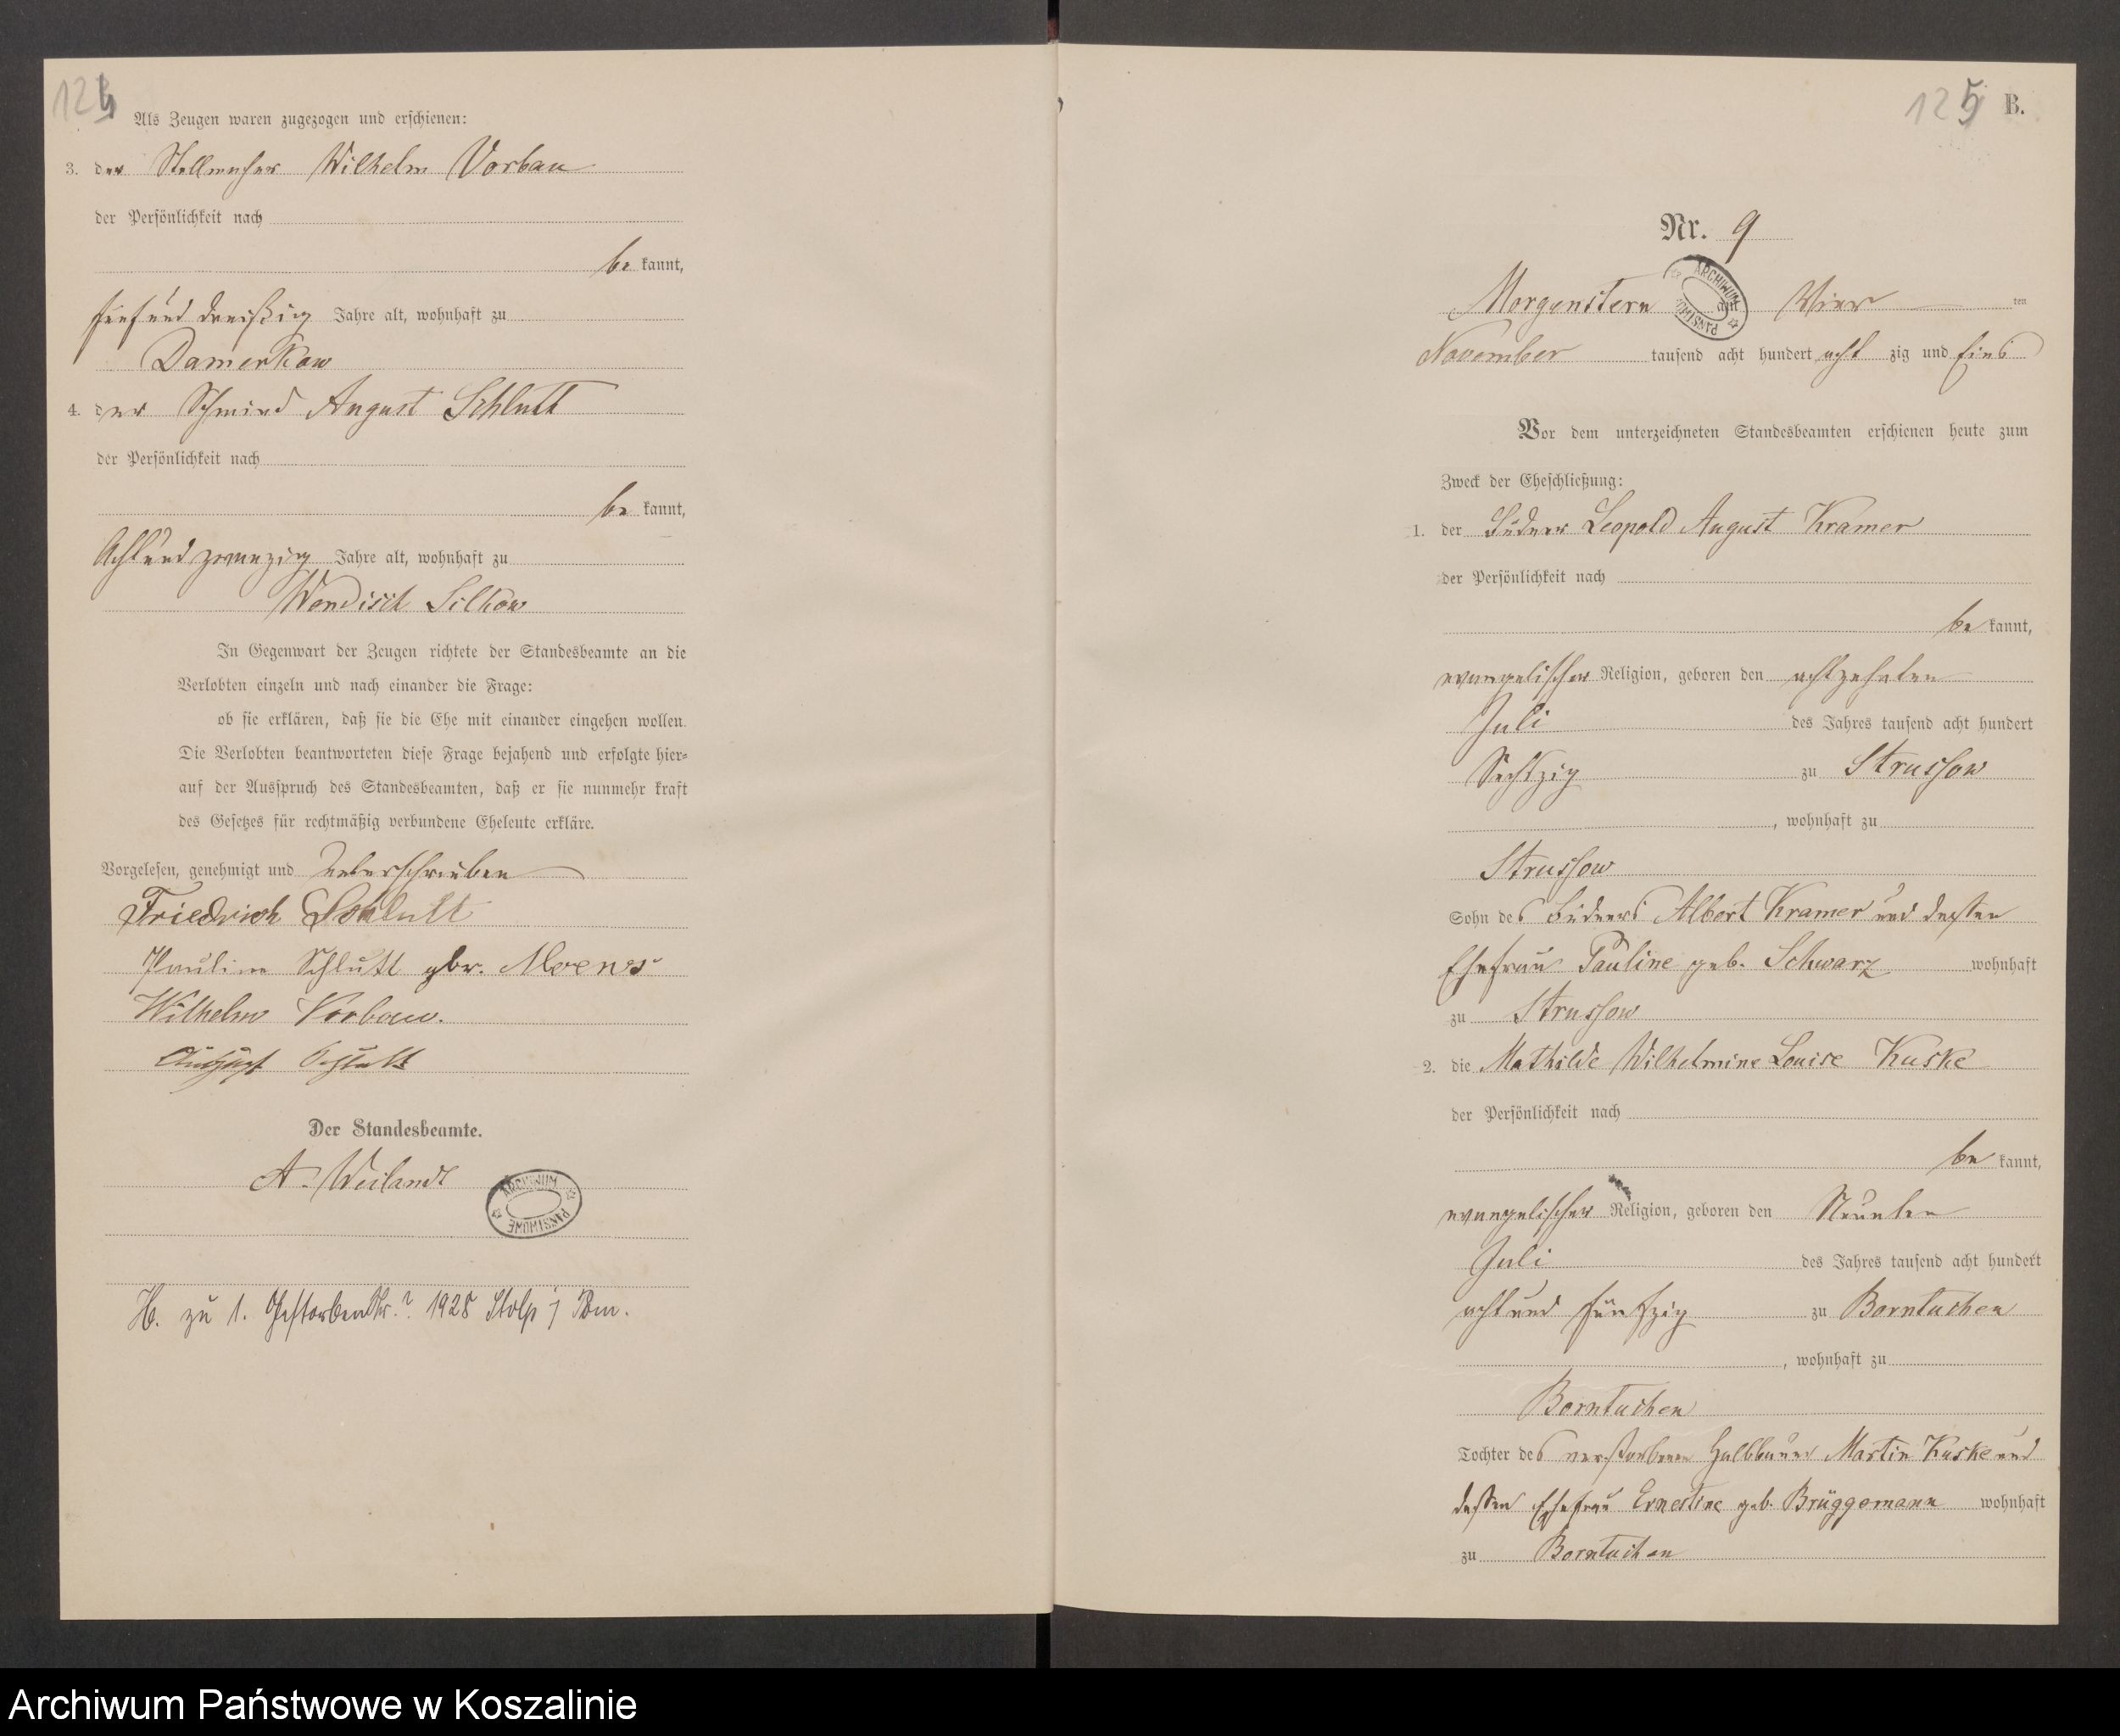 124
Als Zeugen waren zugezogen und erschienen:
3. der Stellmacher Wilhelm Vorbau
der Persönlichkeit nach
be kannt,
fünfund dreißig Jahre alt, wohnhaft zu
Damerkow
4. der Schmied August Schlutt
der Persönlichkeit nach
be kannt,
Achtund zwanzig Jahre alt, wohnhaft zu
Wendisch Silkow
In Gegenwart der Zeugen richtete der Standesbeamte an die
Verlobten einzeln und nach einander die Frage:
ob sie erklären, daß sie die Ehe mit einander eingehen wollen.
Die Verlobten beantworteten diese Frage bejahend und erfolgte hier-
auf der Ausspruch des Standesbeamten, daß er sie nunmehr kraft
des Gesetzes für rechtmäßig verbundene Eheleute erkläre.
Vorgelesen, genehmigt und unterschrieben
Friedrich Schlutt
Pauline Schlutt gbr. Moews
Wilhelm Vorbau.
August Schlutt
Der Standesbeamte.
A. Weilandt
ARCHIWUM PAŃSTWOWE
H. zu 1. Gestorben Nr. ? 1928 Stolp i/ Pom.
125 B.
Nr. 9
Morgenstern am Vier ten
ARCHIWUM PAŃSTWOWE
November tausend acht hundert acht zig und Eins
Vor dem unterzeichneten Standesbeamten erschienen heute zum
Zweck der Eheschließung:
1. der Büdner Leopold August Kramer
der Persönlichkeit nach
be kannt,
evangelischer Religion, geboren den achtzehnten
Juli des Jahres tausend acht hundert
Sechzig zu Strussow
, wohnhaft zu
Strussow
Sohn des Büdners Albert Kramer und dessen
Ehefrau Pauline geb. Schwarz wohnhaft
zu Strussow
2. die Mathilde Wilhelmine Louise Kuske
der Persönlichkeit nach
be kannt,
evangelischer Religion, geboren den Neunten
Juli des Jahres tausend acht hundert
achtund fünfzig zu Borntuchen
, wohnhaft zu
Borntuchen
Tochter des verstorbenen Halbbauer Martin Kuske und
dessen Ehefrau Ernestine geb. Brüggemann wohnhaft
zu Borntuchen
Archiwum Państwowe w Koszalinie